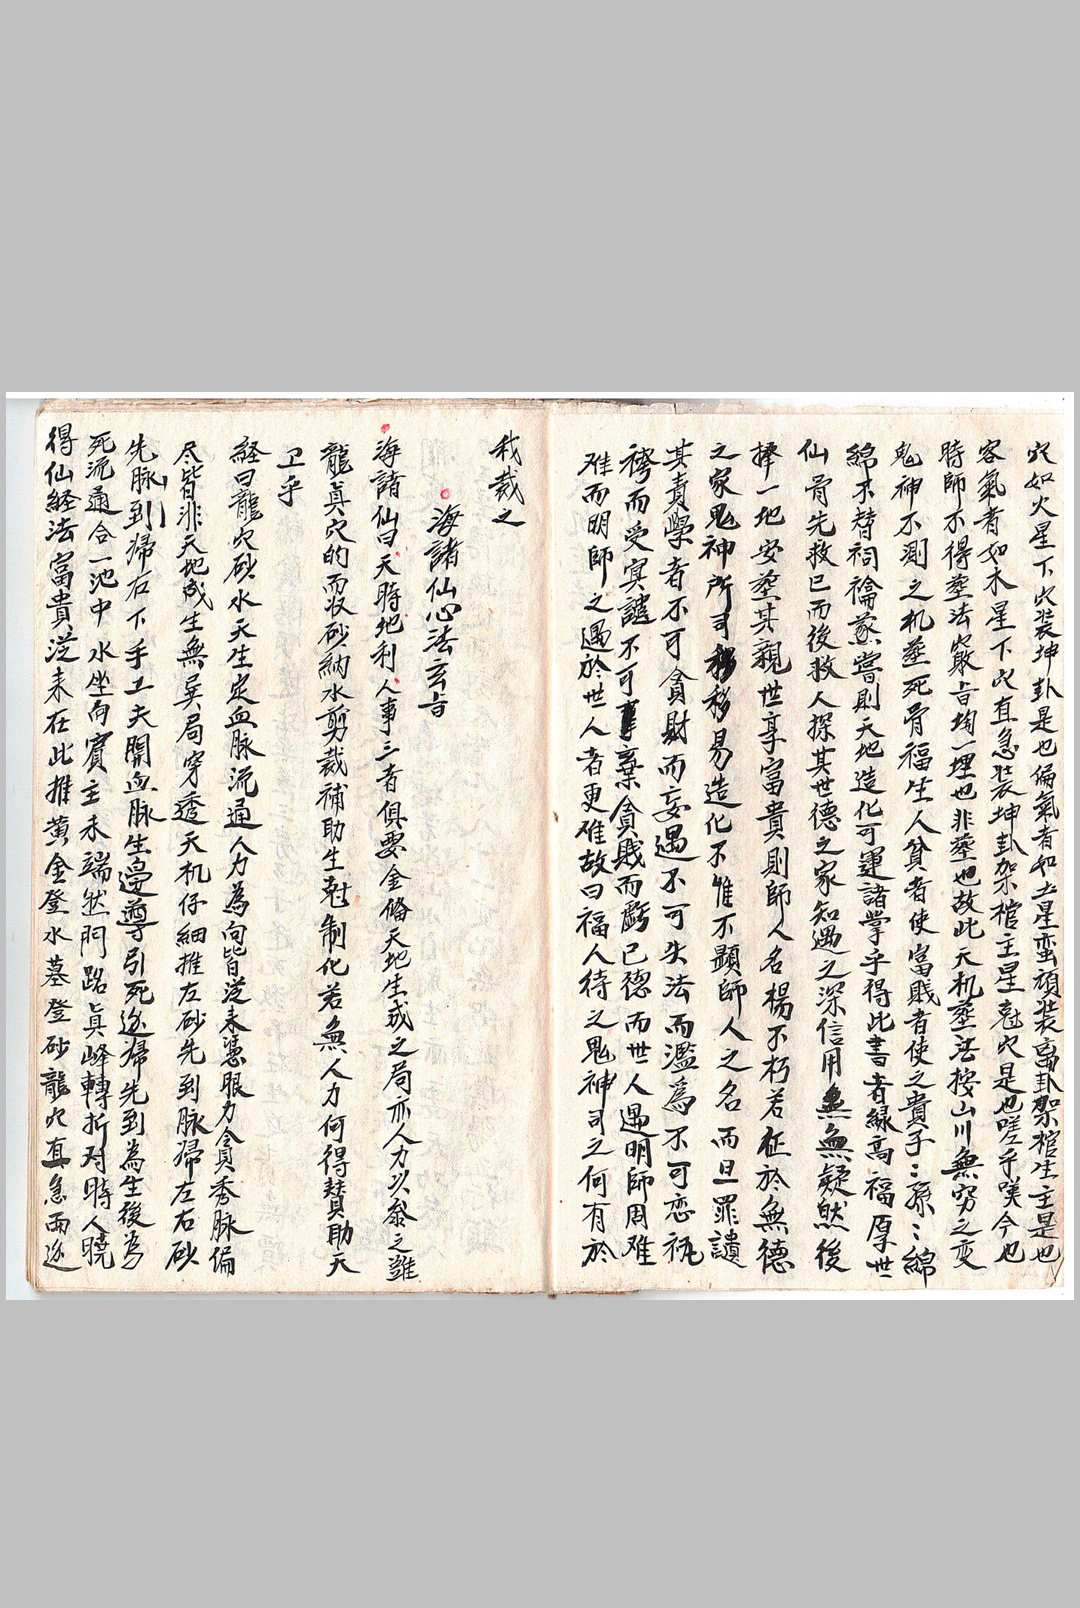 穴如火星下穴装坤卦是也偏氣者如土星蛮頑装离卦架棺生主是也
客氣者如木星下穴直急装坤卦架棺主星尅穴是也嗟乎嘆今也
時師不得塟法竅旨掏一埋也非塟也故此天机塟法按山川無穷之变
鬼神不測之机塟死骨福生人貧者使富賎者使之貴子〻孫〻綿
綿不替祠禴蒸嘗則天地造化可運諸掌乎得此書者緣高福厚世
仙骨先救已而後救人探其世德之家知遇之深信用無疑然後
擇一地安塟其親世享富貴則師人名楊不朽若在於無德
之家鬼神所司移易造化不惟不顕師人之名而旦罪譴
其責學者不可貪財而妄遇不可失法而濫為不可恋祇
禱而受冥譴不可棄貪賎而虧已德而世人遇明師固难
难而明師之遇於世人者更难故曰福人待之鬼神司之何有於
我裁之
海諸仙心法玄旨
海諸仙曰天時地利人事三者俱要全俻天地生成之局亦人力以叅之雖
龍眞穴的而収砂納水剪裁補助生尅制化若無人力何得賛助天
卫乎
経曰龍穴砂水天生定血脉流通人力為向皆従来憑眼力貪秀脉偏
尽皆非天地成生無異局穿透天机仔細推左砂先到脉㷌左右砂
先脉到㷌右下手工夫開血脉生邊導引死邊㷌先到為生後為
死流通合一池中水坐向賓主未端然門路眞峰轉折对時人曉
得仙経法富貴従来在此推黄金登水墓登砂龍穴直急而逆